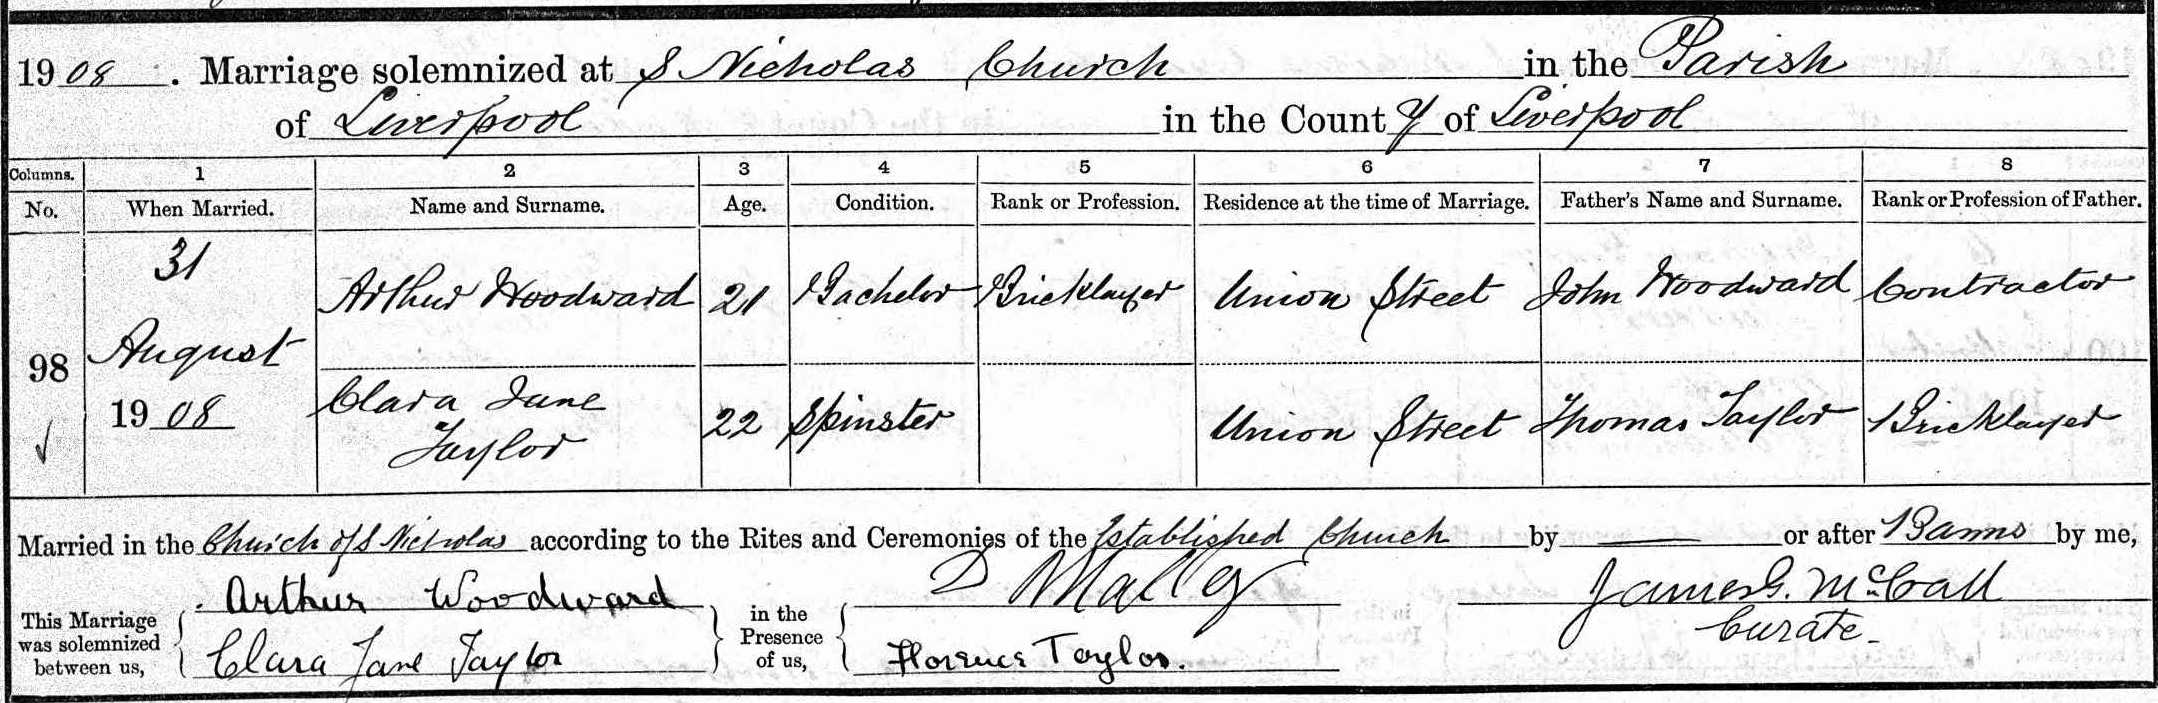 1908. Marriage solemnized at S Nicholas Church in the Parish
of Liverpool in the County of Liverpool
Columns. 1 2 3 4 5 6 7 8
No. When Married. Name and Surname. Age. Condition. Rank or Profession. Residence at the time of Marriage. Father's Name and Surname. Rank or Profession of Father.
31
Arthur Woodward 21 Bachelor Bricklayer Union Street John Woodward Contractor
98 August
1908 Clara Jane
Taylor 22 Spinster Union Street Thomas Taylor Bricklayer
Married in the Church of S Nicholas according to the Rites and Ceremonies of the Established Church by — or after Banns by me,
This Marriage was solemnized between us, Arthur Woodward in the Presence of us, D Malley James G. McCall
Clara Jane Taylor Florence Taylor. Curate.